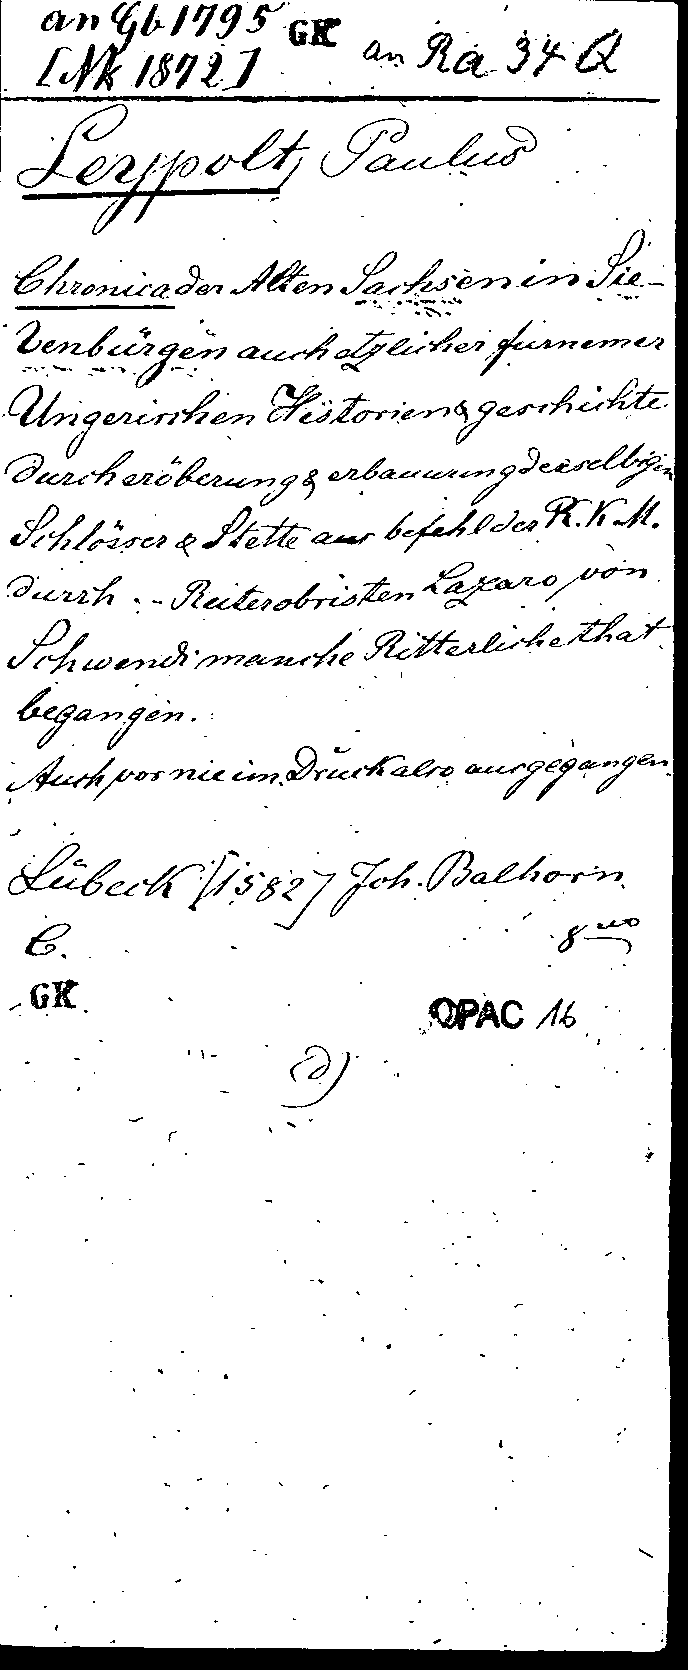 an Gb 1795 GK an Ra 34 Q
[Nk 1872]
Leypolt, Paulus
Chronica der Alten Sachsen in Sie-
venbürgen auch etzlicher fürnemer
Ungerischen Historien & geschichte
durch eröberung & erbauung derselbigen
Schlösser & Stette aus befehl der R. K. M.
durch .-. Reiterobristen Lazaro von
Schwendi manche Ritterliche that
begangen.
Auch vor nie im Druck also ausgegangen.
Lübeck [1582] Joh. Balhorn.
C. 8vo
GK
OPAC 16
(d)